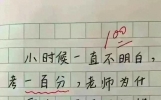 100
小时候一直不明白，
考一百分，老师为什